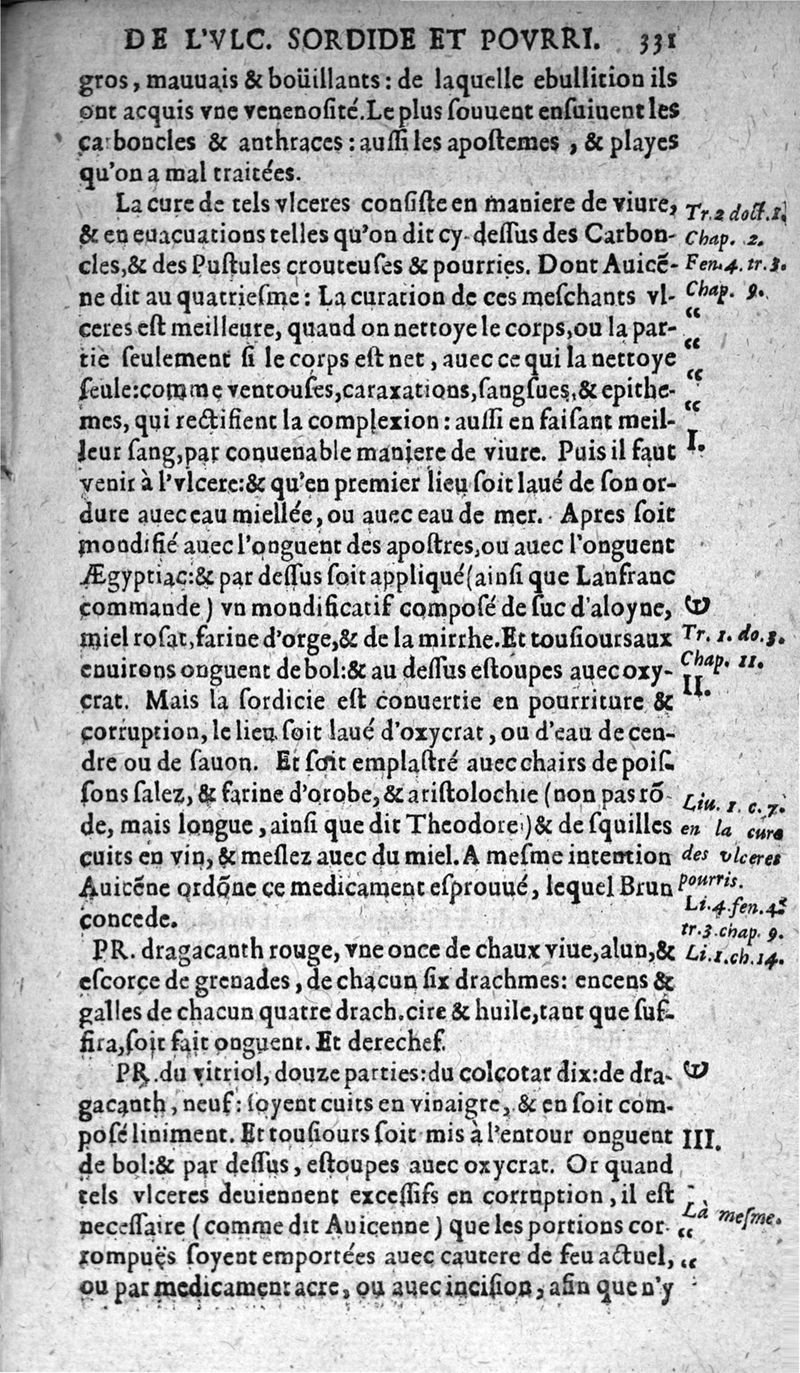 DE L'VLC. SORDIDE ET POVRRI. 331
gros, mauuais & boüillants : de laquelle ebullition ils
ont acquis vne venenoſité. Le plus ſouuent enſuiuent les
carboncles & anthraces : auſſi les apoſtemes , & playes
qu'on a mal traitées.
La cure de tels vlceres conſiſte en maniere de viure,
& en euacuations telles qu'on dit cy-deſſus des Carbon-
cles, & des Puſtules crouteuſes & pourries. Dont Auicē-
ne dit au quatrieſme : La curation de ces meſchants vl-
ceres eſt meilleure, quand on nettoye le corps, ou la par-
tie ſeulement ſi le corps eſt net , auec ce qui la nettoye
ſeule: comme ventouſes, caraxations, ſangſues, & epithe-
mes, qui rectifient la complexion : auſſi en faiſant meil-
leur ſang, par conuenable maniere de viure. Puis il faut
venir à l'vlcere: & qu'en premier lieu ſoit laué de ſon or-
dure auec eau miellée, ou auec eau de mer. Apres ſoit
mondifié auec l'onguent des apoſtres, ou auec l'onguent
Ægyptiac: & par deſſus ſoit appliqué (ainſi que Lanfranc
commande) vn mondificatif compoſé de ſuc d'aloyne,
miel roſat, farine d'orge, & de la mirrhe. Et touſiours aux
enuirons onguent de bol: & au deſſus eſtoupes auec oxy-
crat. Mais la ſordicie eſt conuertie en pourriture &
corruption, le lieu ſoit laué d'oxycrat, ou d'eau de cen-
dre ou de ſauon. Et ſoit emplaſtré auec chairs de poiſ-
ſons ſalez, & farine d'orobe, & ariſtolochie (non pas rō-
de, mais longue, ainſi que dit Theodore) & de ſquilles
cuits en vin, & meſlez auec du miel. A meſme intention
Auicēne ordōne ce medicament eſprouué, lequel Brun
concede.
PR. dragacanth rouge, vne once de chaux viue, alun, &
eſcorce de grenades, de chacun ſix drachmes: encens &
galles de chacun quatre drach. cire & huile, tant que ſuf-
fira, ſoit fait onguent. Et derechef.
PR. du vitriol, douze parties: du colcotar dix: de dra-
gacanth, neuf: ſoyent cuits en vinaigre, & en ſoit com-
poſé liniment. Et touſiours ſoit mis à l'entour onguent
de bol: & par deſſus, eſtoupes auec oxycrat. Or quand
tels vlceres deuiennent exceſſifs en corruption, il eſt
neceſſaire (comme dit Auicenne) que les portions cor-
rompuës ſoyent emportées auec cautere de feu actuel,
ou par medicament acre, ou auec inciſion, afin que n'y
Tr. 2 doct. 1.
Chap. 2.
Fen. 4. tr. 3.
Chap. 9.
“
“
“
“
I.
Tr. 1. do. 3.
Chap. 11.
II.
Liu. 1. c. 7.
en la cure
des vlceres
pourris.
Li. 4. fen. 4.
tr. 3. chap. 9.
Li. 1. ch. 14.
III.
La meſme.
“
“